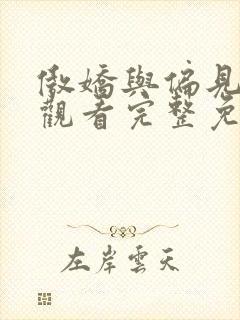 傲嬌與偏見
觀看完整免
左岸雲天